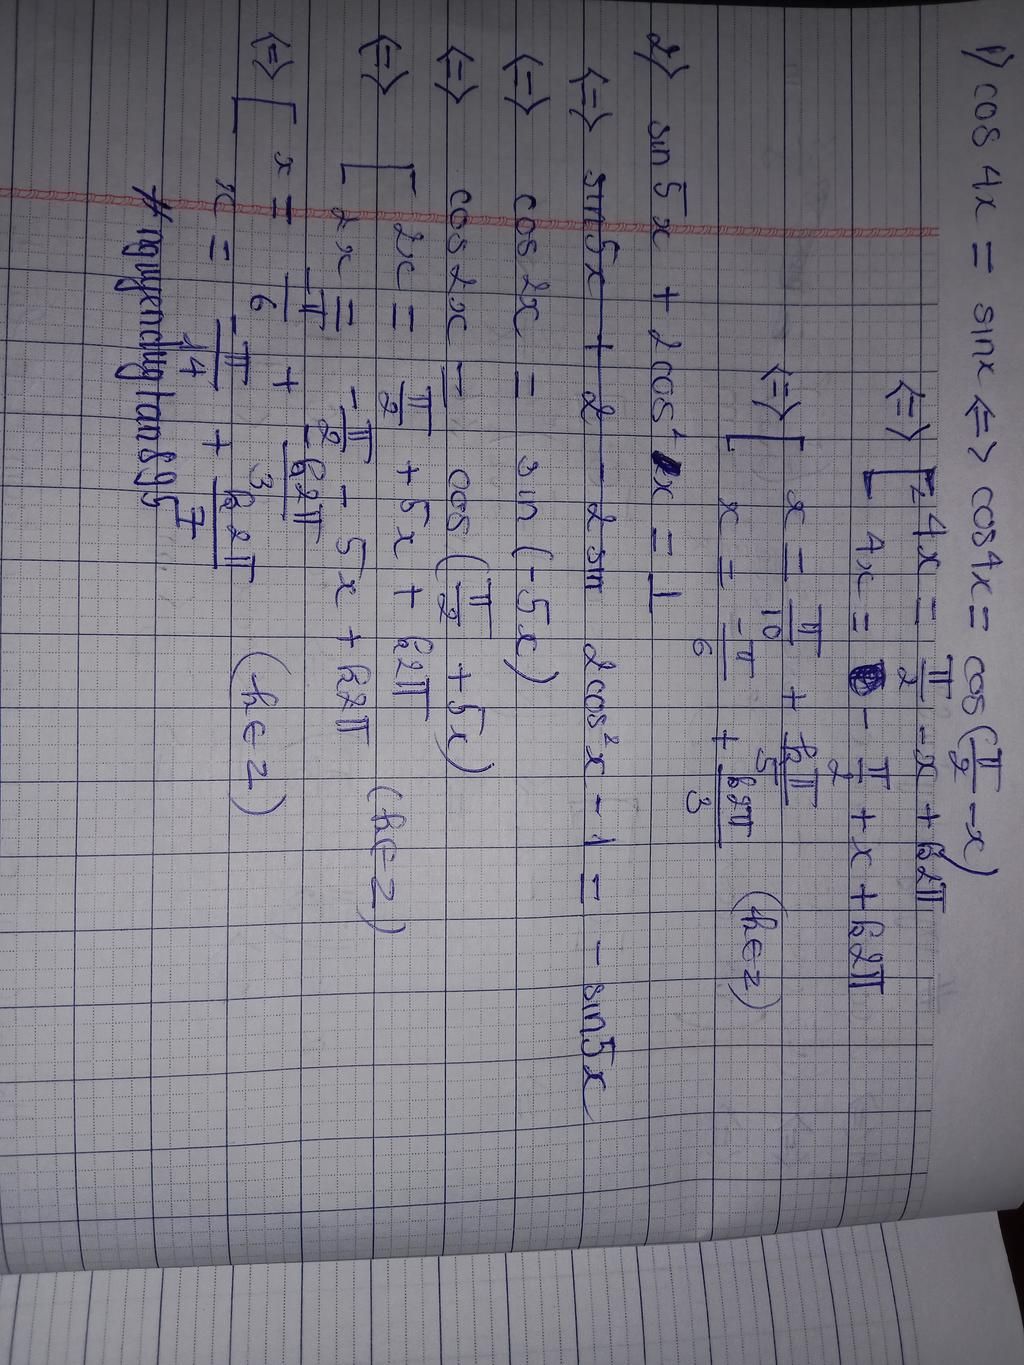 1) cos 4x = sinx <=> cos4x = cos(π/2 - x)
<=> [ 4x = π/2 - x + k2π
4x = - π/2 + x + k2π
<=> [ x = π/10 + k2π/5
x = -π/6 + k2π/3 (k∈Z)
2) sin 5x + 2cos² x = 1
<=> sin 5x + 2 - 2 sin 2cos²x - 1 = - sin5x
<=> cos 2x = sin(-5x)
<=> cos2x = cos(π/2 + 5x)
<=> [ 2x = π/2 + 5x + k2π
2x = -π/2 - 5x + k2π (k∈Z)
<=> [ x = -π/6 + k2π/3
x = -π/14 + k2π/7 (k∈Z)
#nguyenduytan695